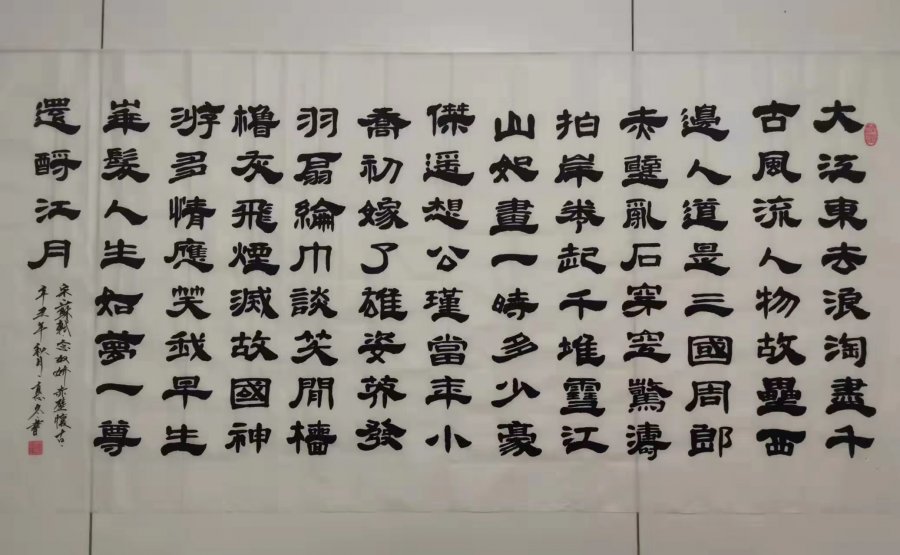 大江東去浪淘盡千
古風流人物故壘西
邊人道是三國周郎
赤壁亂石穿空驚濤
拍岸卷起千堆雪江
山如畫一時多少豪
傑遥想公瑾當年小
喬初嫁了雄姿英發
羽扇綸巾談笑間檣
櫓灰飛煙滅故國神
游多情應笑我早生
華髮人生如夢一尊
還酹江月
宋蘇軾念奴嬌赤壁懷古
辛丑年秋月